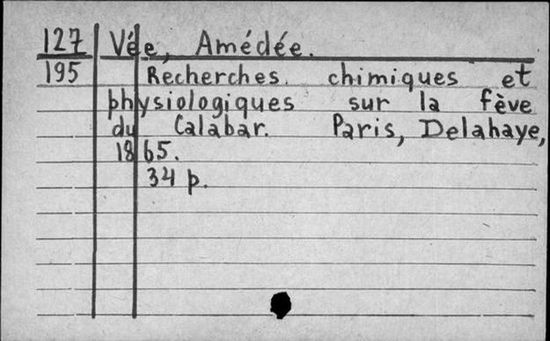 127 Vée, Amédée.
195 Recherches chimiques et
physiologiques sur la fève
du Calabar. Paris, Delahaye,
1865.
34 p.